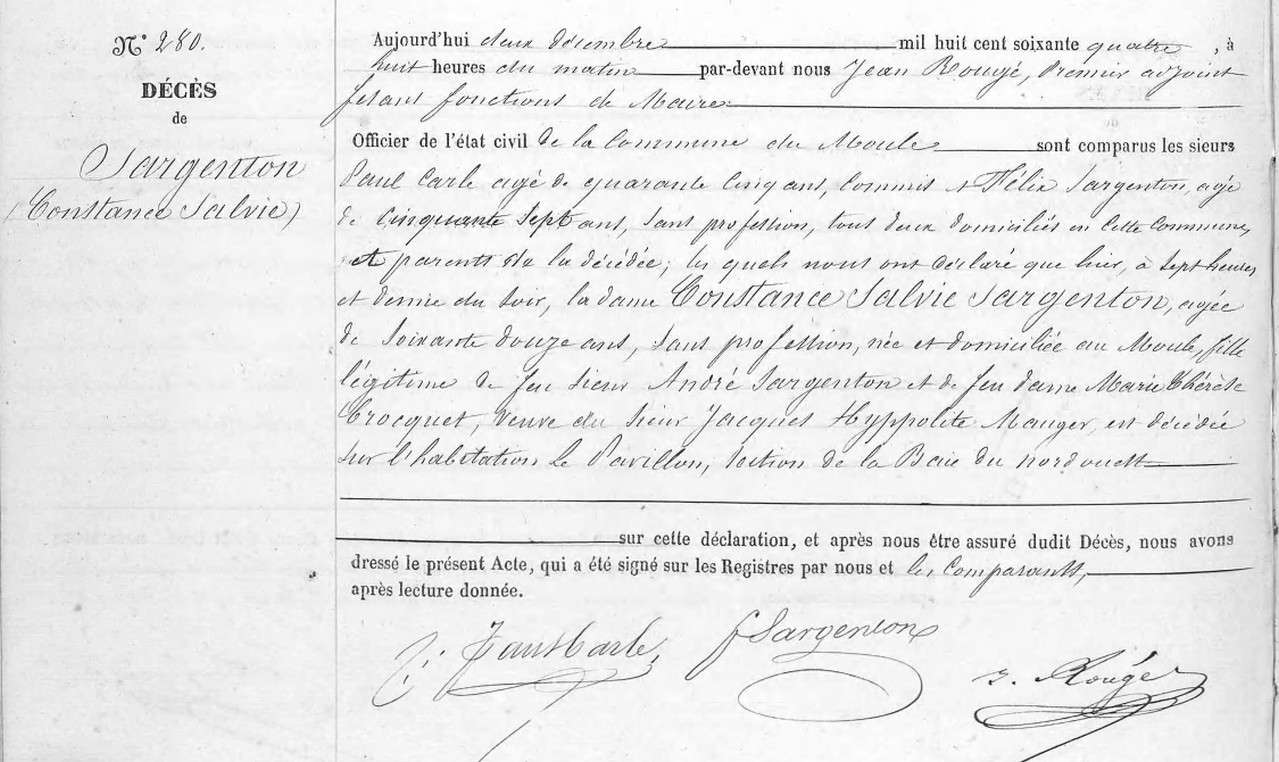 N° 280.
DÉCÈS
de
Sargenton
(Constance Salvie)
Aujourd'hui deux décembre mil huit cent soixante quatre, à
huit heures du matin par-devant nous Jean Rougé, premier adjoint
fesant fonctions de Maire
Officier de l'état civil de la Commune du Moule sont comparus les sieurs
Paul Carle agé de quarante cinq ans, commis et Félix Sargenton, agé
de cinquante sept ans, sans profession, tous deux domiciliés en cette commune,
et parents de la décédée; les quels nous ont déclaré que hier, à sept heures
et demie du soir, la dame Constance Salvie Sargenton, agée
de soixante douze ans, sans profession, née et domiciliée au Moule, fille
légitime de feu sieur André Sargenton et de feu dame Marie Thérèse
Crocquet, veuve du sieur Jacques Hyppolite Mauger, est décédée
sur l'habitation Le Pavillon, section de la Baie du nord ouest
sur cette déclaration, et après nous être assuré dudit Décès, nous avons
dressé le présent Acte, qui a été signé sur les Registres par nous et les comparants,
après lecture donnée.
Paul Carle
f Sargenton
J. Rougé